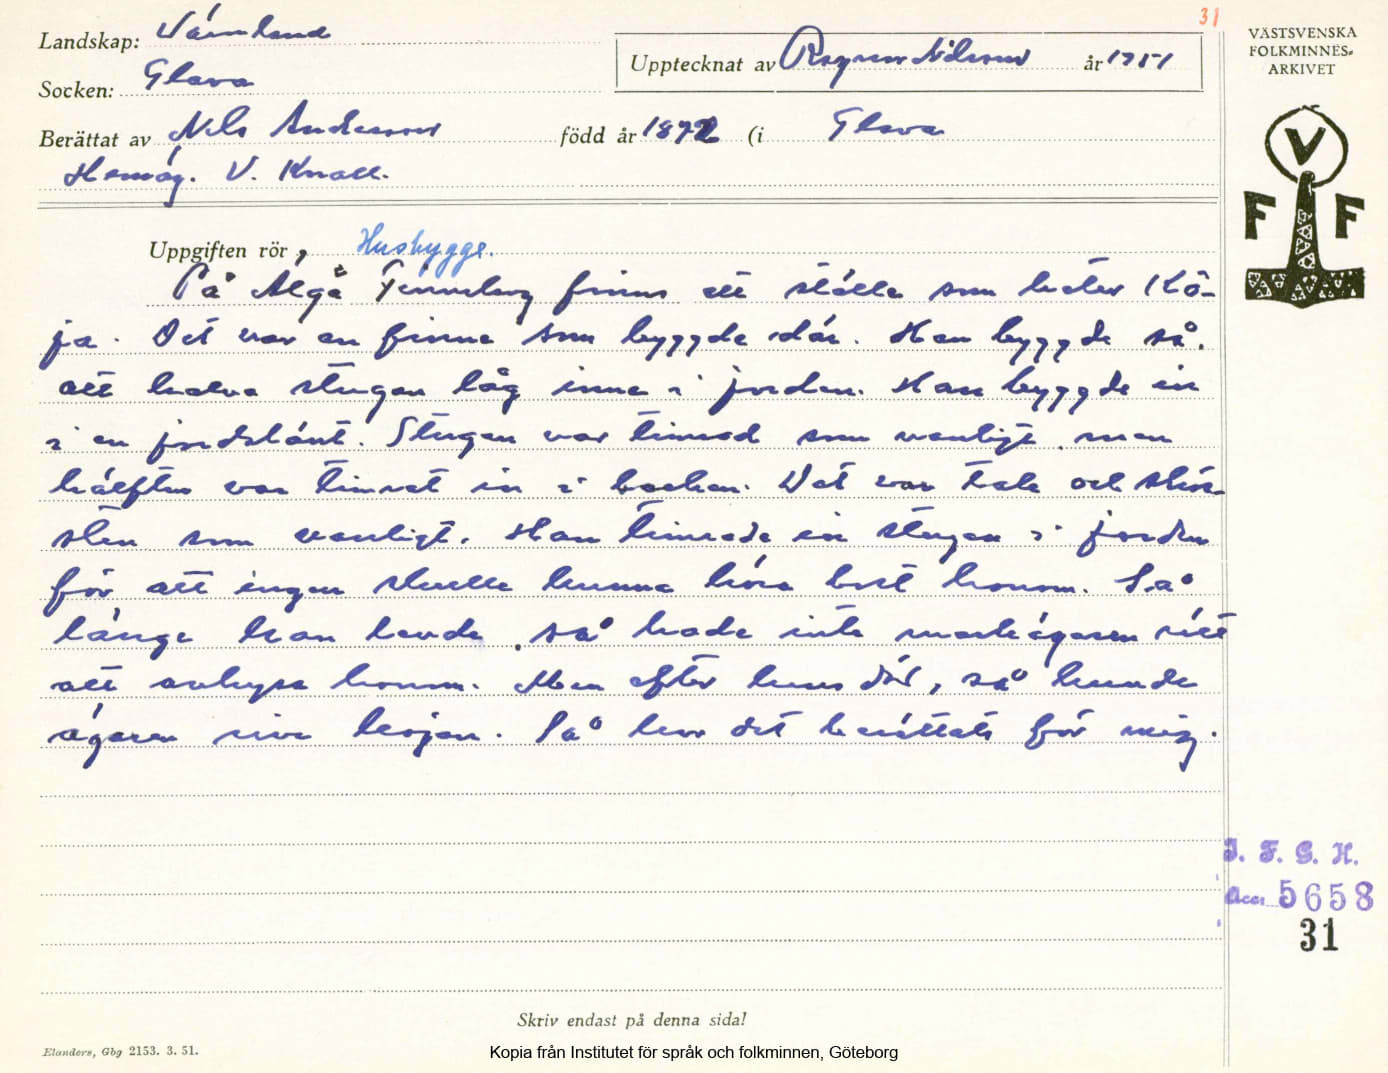 31
Landskap: Värmland
VÄSTSVENSKA
FOLKMINNES-
ARKIVET
Upptecknat av Ragnar Nilsson år 1951
Socken: Glava
Berättat av Nils Andersson född år 1872 (i Glava
Hemäg. V. Knall.
V
F F
Uppgiften rör, Husbygge.
På Älgå Finnskog finns ett ställe som heter Kö-
ja. Det var en finne som byggde där. Han byggde så,
att halva stugan låg inne i jorden. Han byggde in
i en jordslänt. Stugan var timrad som vanligt men
hälften var timrat in i backen. Det var tak och skor-
sten som vanligt. Han timrade in stugan i jorden
för att ingen skulle kunna köra bort honom. Så
länge han levde, så hade inte markägaren rätt
att avhysa honom. Men efter hans död, så kunde
ägaren riva kojan. Så har det berättats för mig.
I. F. G. H.
Acc. 5658
31
Skriv endast på denna sida!
Elanders, Gbg 2153. 3. 51.
Kopia från Institutet för språk och folkminnen, Göteborg